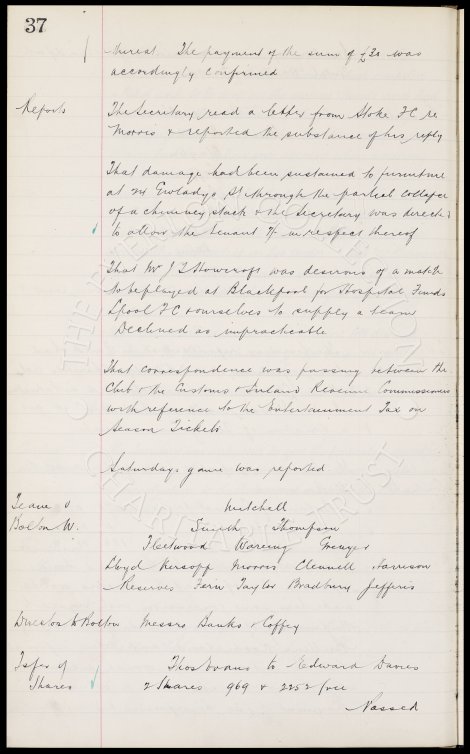 37
The payment of the sum of £30 was
accordingly confirmed
Reports The Secretary read a letter from Stoke FC re
Morris & reported the substance of his reply
That damage had been sustained to furniture
at 24 Gwladys St through the partial collapse
of a chimney stack & the Secretary was directed
to allow the tenant in respect thereof
That Mr J T Howcroft was desirous of a match
to be played at Blackpool for Hospital Funds
Lpool FC & ourselves to supply a team
Declined as impracticable
That correspondence was passing between the
Club & the Customs & Inland Revenue Commissioners
with reference to the Entertainment Tax on
Season Tickets
Saturdays game was reported
Team v Mitchell
Bolton W. Smith Thompson
Fleetwood Wareing Grenyer
Lloyd Kirsopp Morris Clennell Harrison
Reserves Fern Taylor Bradbury Jefferis
Directors to Bolton Messrs Banks & Coffey
Tsfer of Thos Evans to Edward Davies
Shares 2 Shares 969 & 2252 free
Passed
THE EVERTON COLLECTION
CHARITABLE TRUST